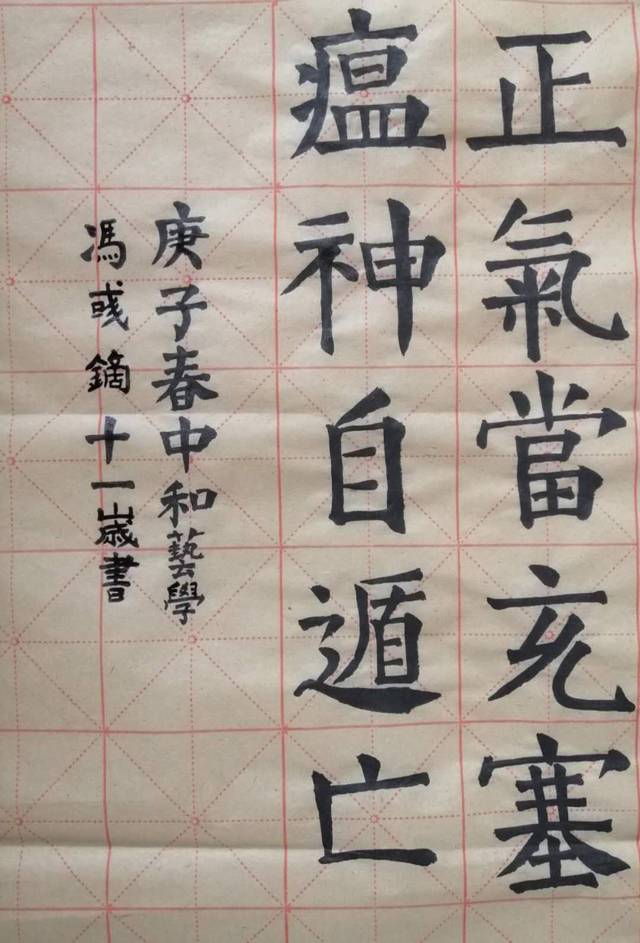 正氣當充塞
瘟神自遁亡
庚子春中和藝學
馮彧鏑十一歲書